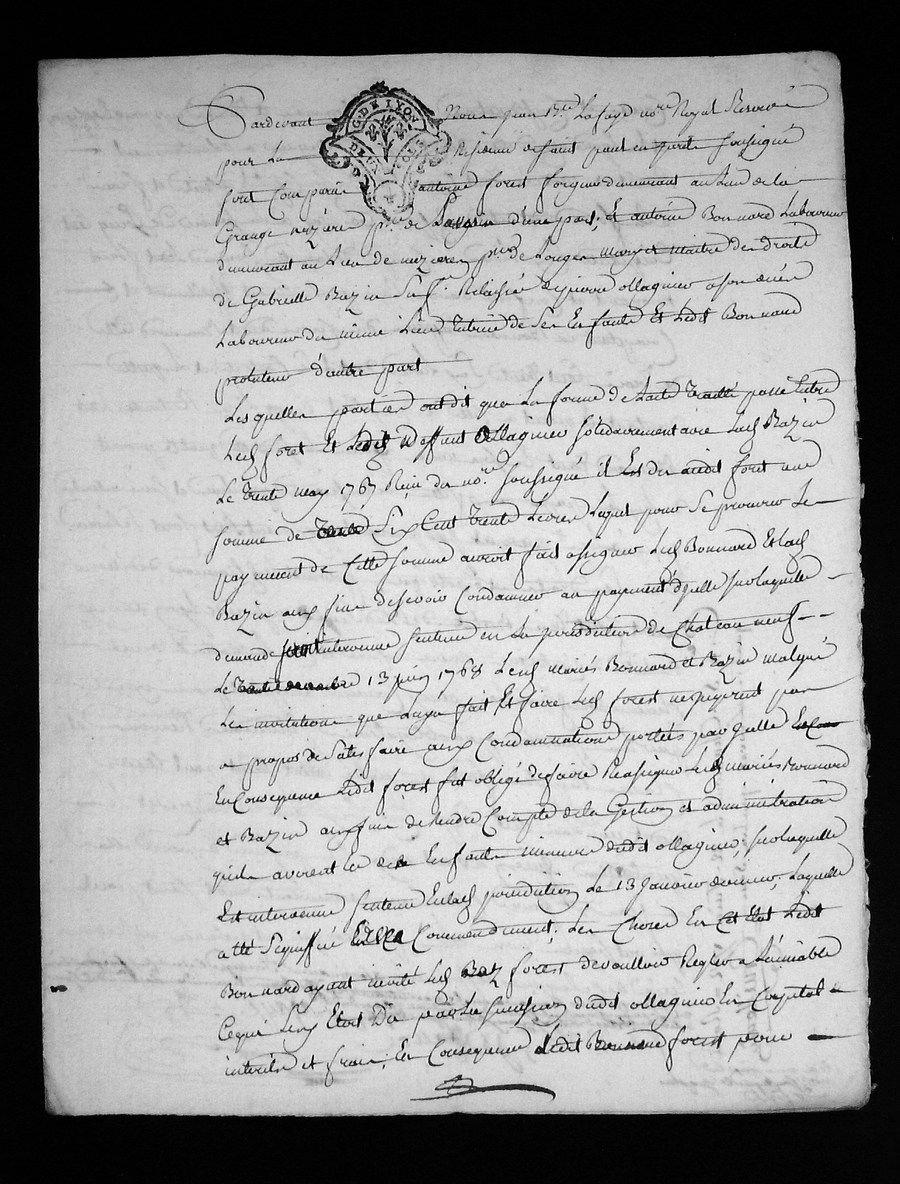 Pardevant Nous jean Bte Lafaye nore Royal Reservé
G. DE LYON
DEUX SOLS
pour La Residence desaint paul en quart soussigné
font Comparu antoine forest forgeur demeurant au Lieu de la
Grange nézière psse de d'une part, et antoine Bonnard Laboureur
demeurant au Lieu de nézieres psse de mary et maitre des droits
de Gabrielle Bazin Relaissée de pierre ollagnier a son vivant
Laboureur du même Lieu tutrice de Ses Enfants Et Ledit Bonnard
protuteur d'autre part
Lesquelles parties ont dit que La forme de traitté passé Entre
Led forest Et Ledit deffunt ollagnier solidairement avec Lad Bazin
Le trente may 1767 Reçu du nore soussigné il Est du audit forest une
somme de Six Cent trente Livres Lequel pour Se procurer Le
payement de Cette somme auroit fait assigner Led Bonnard Et Lad
Bazin aux fins de se voir Condamner au payement d'ycelle sur laquelle
demande seroit intervenue sentence en La jurisdiction de Chateauneuf
Le 13 juin 1768 Lesd mariés Bonnard et Bazin malgré
Les invitations que Luy a fait Et faire Led forest ne jugerent pas
a propos de satisfaire aux Condamnations portées par ycelle
En Consequence Ledit forest fut obligé de faire Reassigner Lesd mariés Bonnard
et Bazin aux fins de Rendre Compte de la Gestion et administration
qu'ils avoient Eu des Enfants mineurs dudit ollagnier, sur laquelle
Est intervenue sentence En lad jurisdiction Le 13 Janvier dernier, Laquelle
a été signiffiée Commendement, Les Choses En Cet Etat Ledit
Bonnard ayant invité Led forest de voulloir Regler a L'amiable
Ce qui Luy Etoit Dû par La succession dudit ollagnier En Capital
interets et frais, En Consequence Ledit forest pour